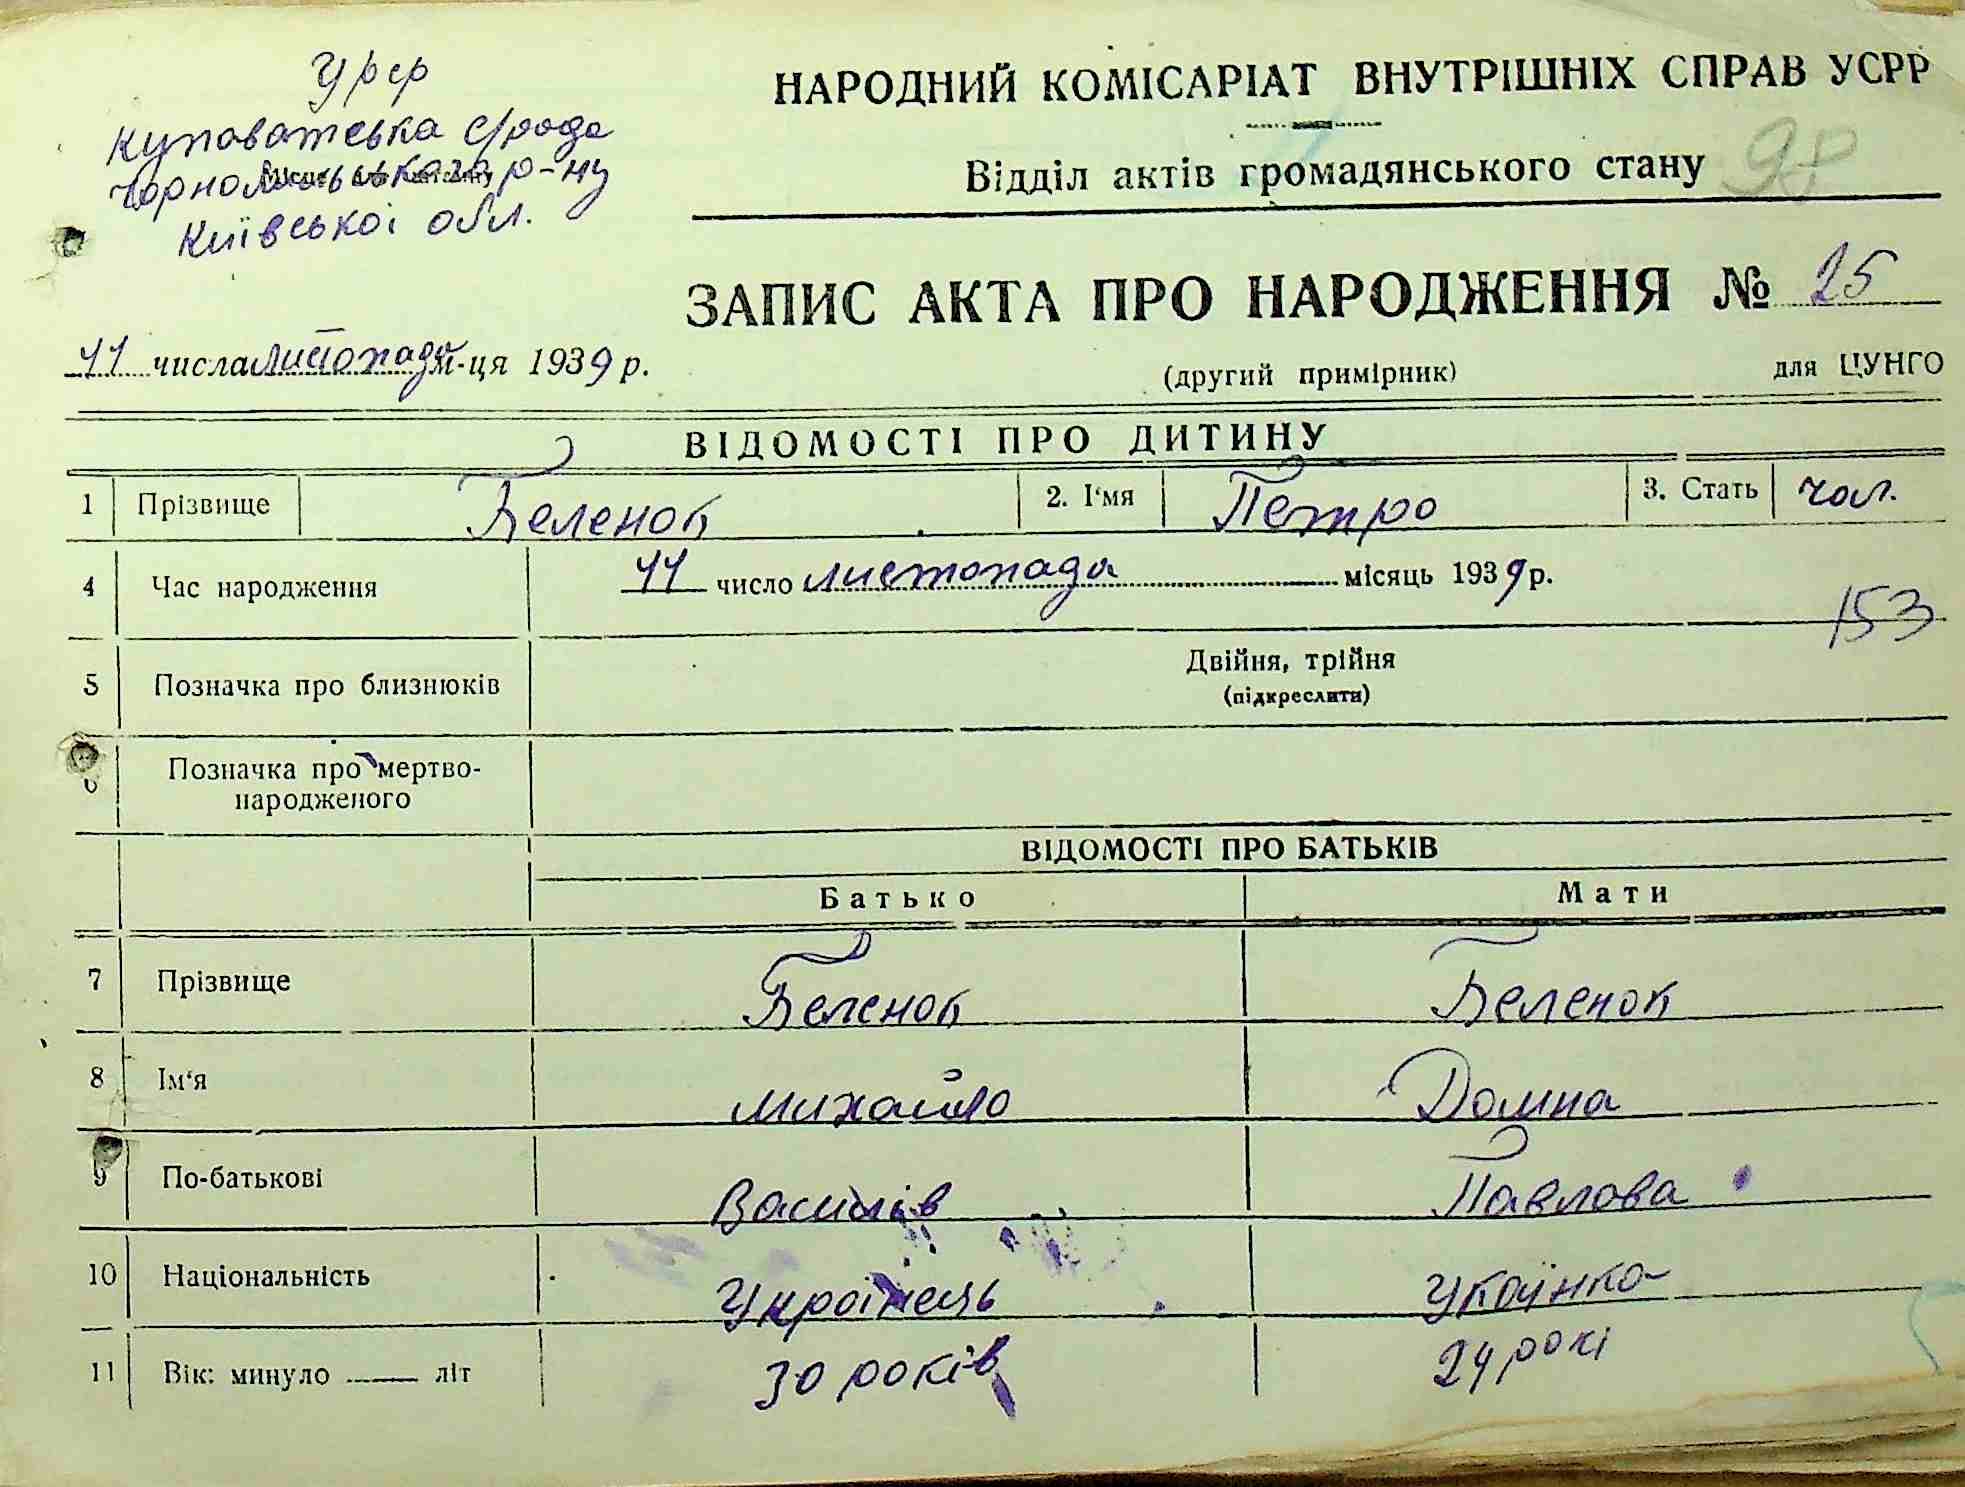 УРСР
НАРОДНИЙ КОМІСАРІАТ ВНУТРІШНІХ СПРАВ УСРР
Куповатська с/рада
Чорнобильського р-ну
Київської обл.
Відділ актів громадянського стану
ЗАПИС АКТА ПРО НАРОДЖЕННЯ № 25
11 числа листопада м-ця 1939 р.
(другий примірник) для ЦУНГО
ВІДОМОСТІ ПРО ДИТИНУ
1 Прізвище Беленок 2. І'мя Петро 3. Стать чол.
4 Час народження 11 число листопада місяць 1939 р.
153
5 Позначка про близнюків Двійня, трійня
(підкреслити)
6 Позначка про мертво-
народженого
ВІДОМОСТІ ПРО БАТЬКІВ
Батько Мати
7 Прізвище Беленок Беленок
8 Ім'я Михайло Домна
9 По-батькові Василів Павлова
10 Національність Українець Укаїнка
11 Вік: минуло ____ літ 30 років 24 рокі